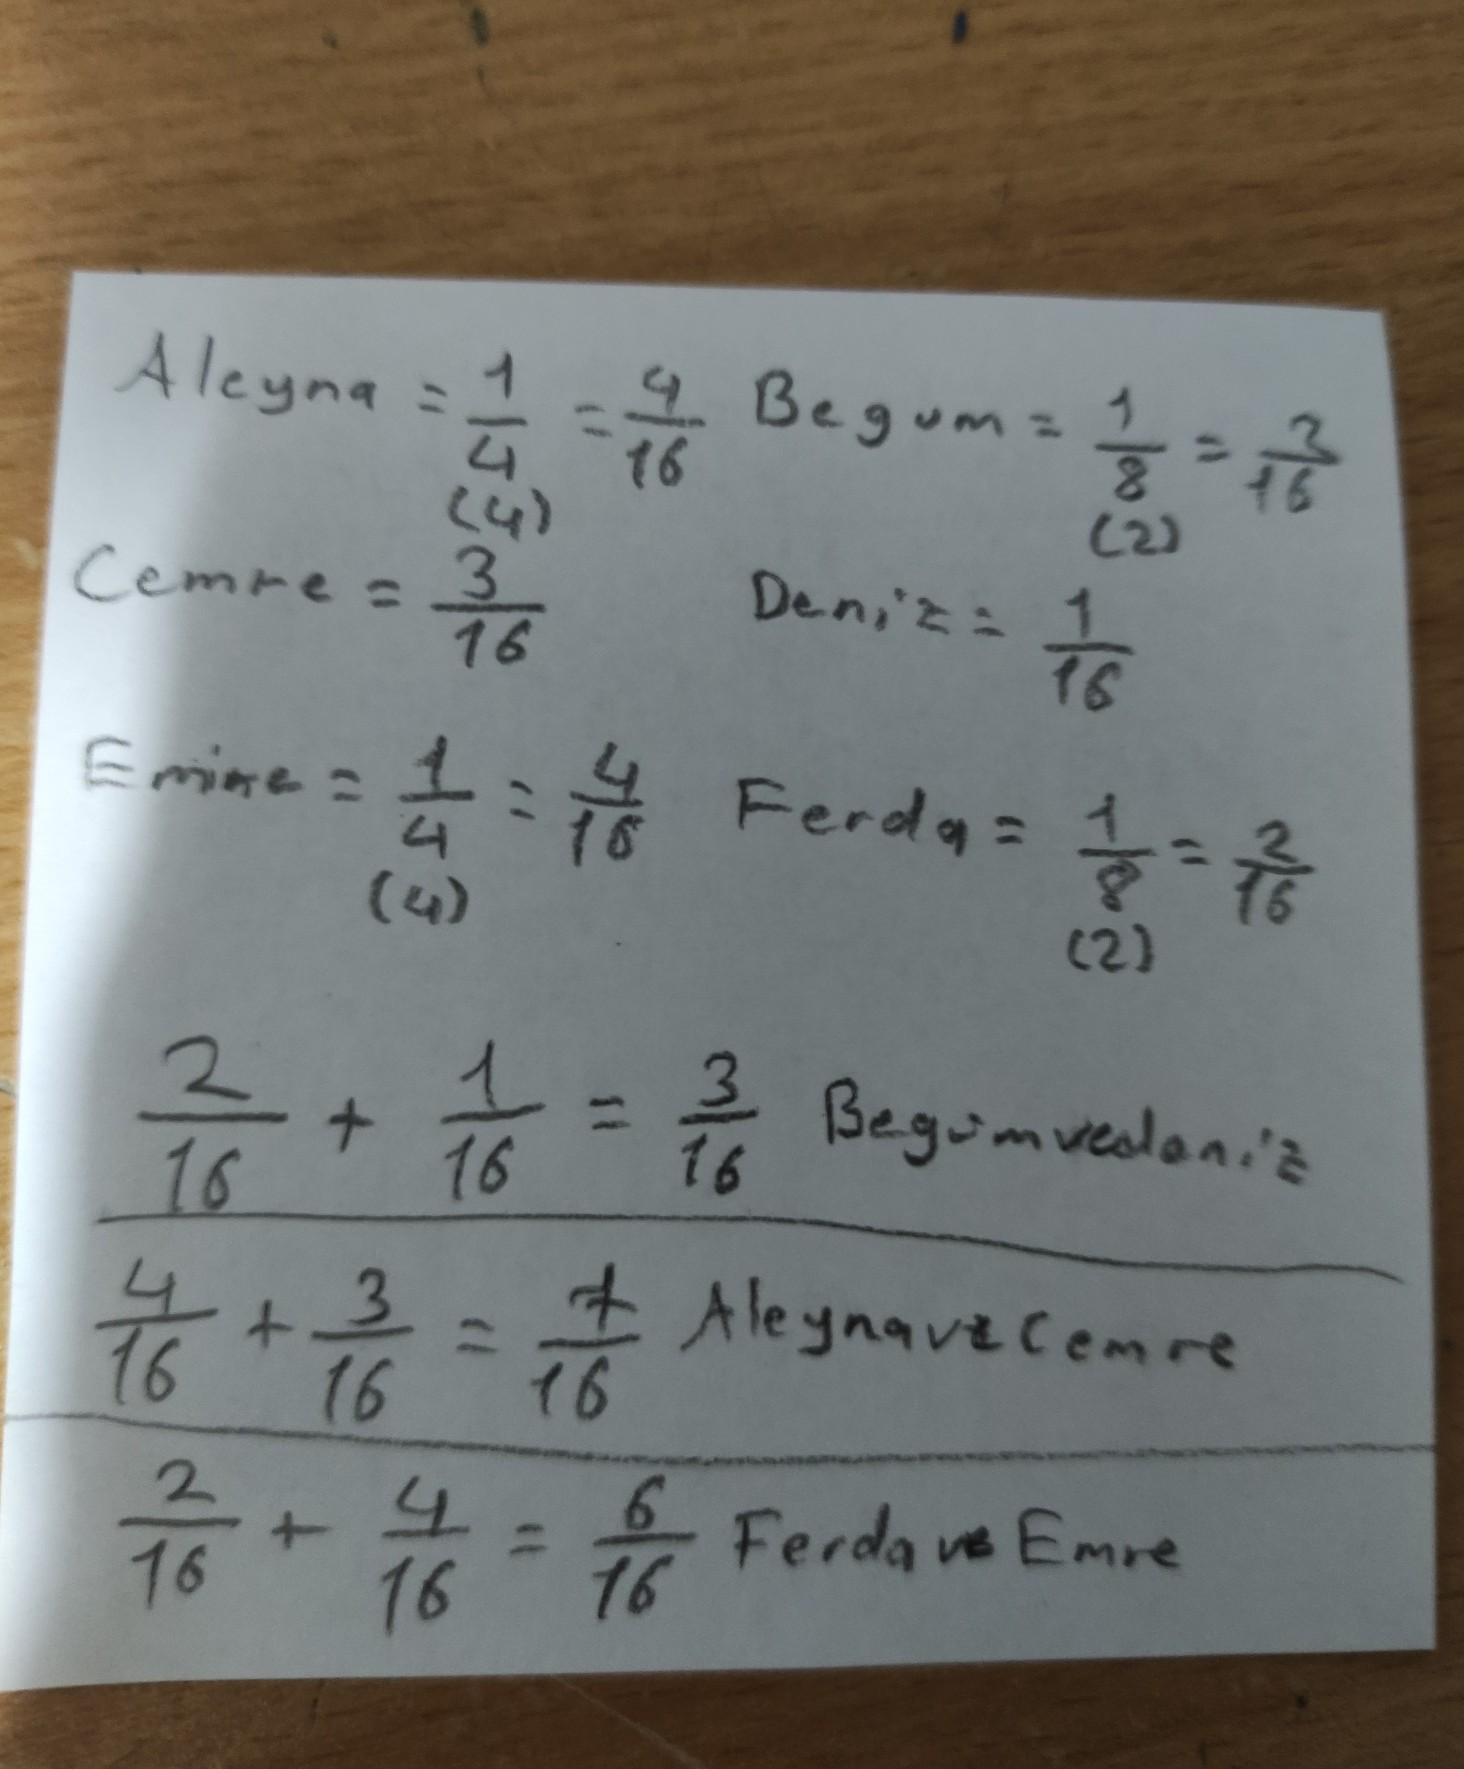 Aleyna = 1/4 = 4/16 Begum = 1/8 = 2/16
(4) (2)
Cemre = 3/16 Deniz = 1/16
Emine = 1/4 = 4/16 Ferda = 1/8 = 2/16
(4) (2)
2/16 + 1/16 = 3/16 Begüm ve deniz
4/16 + 3/16 = 7/16 Aleyna ve Cemre
2/16 + 4/16 = 6/16 Ferda ve Emre